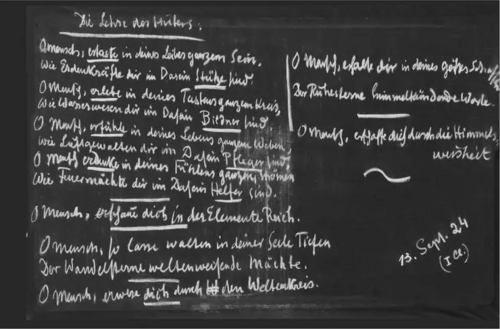 Die Lehre des Hüters:
O Mensch, ertaste in deines Leibes ganzem Sein,
Wie Erdenkräfte dir im Dasein Stütze sind.
O Mensch, erlebe in deines Tastens ganzem Kreis,
Wie Wasserwesen dir im Dasein Bildner sind
O Mensch, erfühle in deines Lebens ganzem Weben,
Wie Luftgewalten dir im Dasein Pfleger sind,
O Mensch erdenke in deines Fühlens ganzem Strömen
Wie Feuermächte dir im Dasein Helfer sind.
O Mensch, erschaue dich in der Elemente Reich.
O Mensch, so lasse walten in deiner Seele Tiefen
Der Wandelsterne weltenweisende Mächte.
O Mensch, erwese dich durch den Weltenkreis.
O Mensch, erhalte dir in deines Geistes
Der Ruhesterne himmelkündende Worte.
O Mensch, erschaffe dich durch die Himmels
weisheit
13. Sept. 24
(I Cl.)